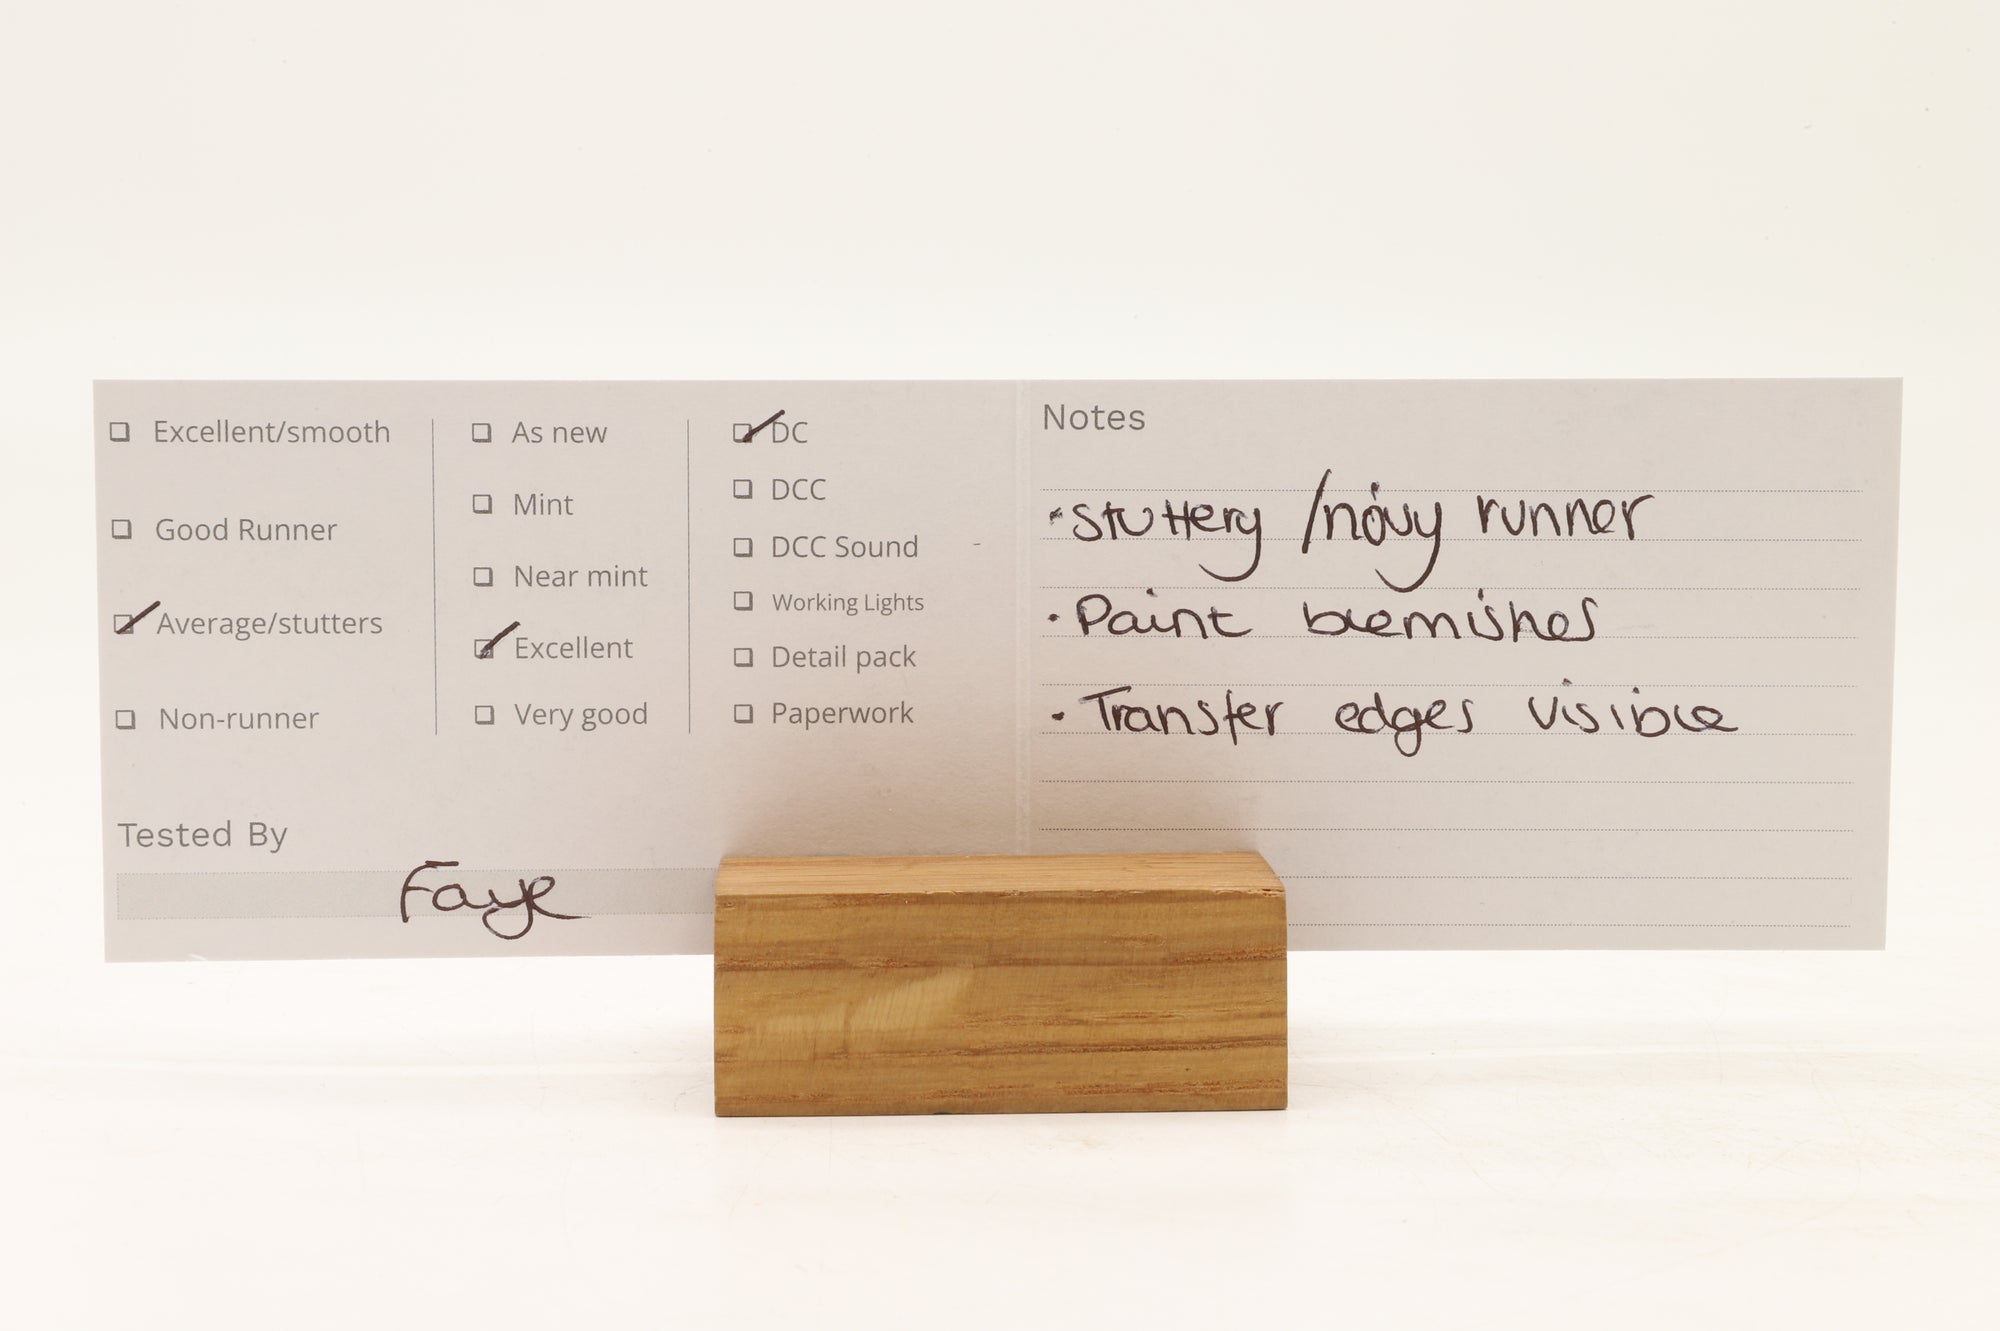 Excellent/smooth
Good Runner
Average/stutters
Non-runner
As new
Mint
Near mint
Excellent
Very good
DC
DCC
DCC Sound
Working Lights
Detail pack
Paperwork
Tested By
Faye
Notes
• Stuttery / runner
• Paint blemishes
• Transfer edges visible